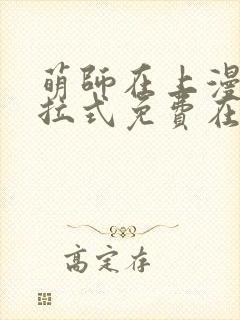 萌师在上漫
拉式免費在
高定存